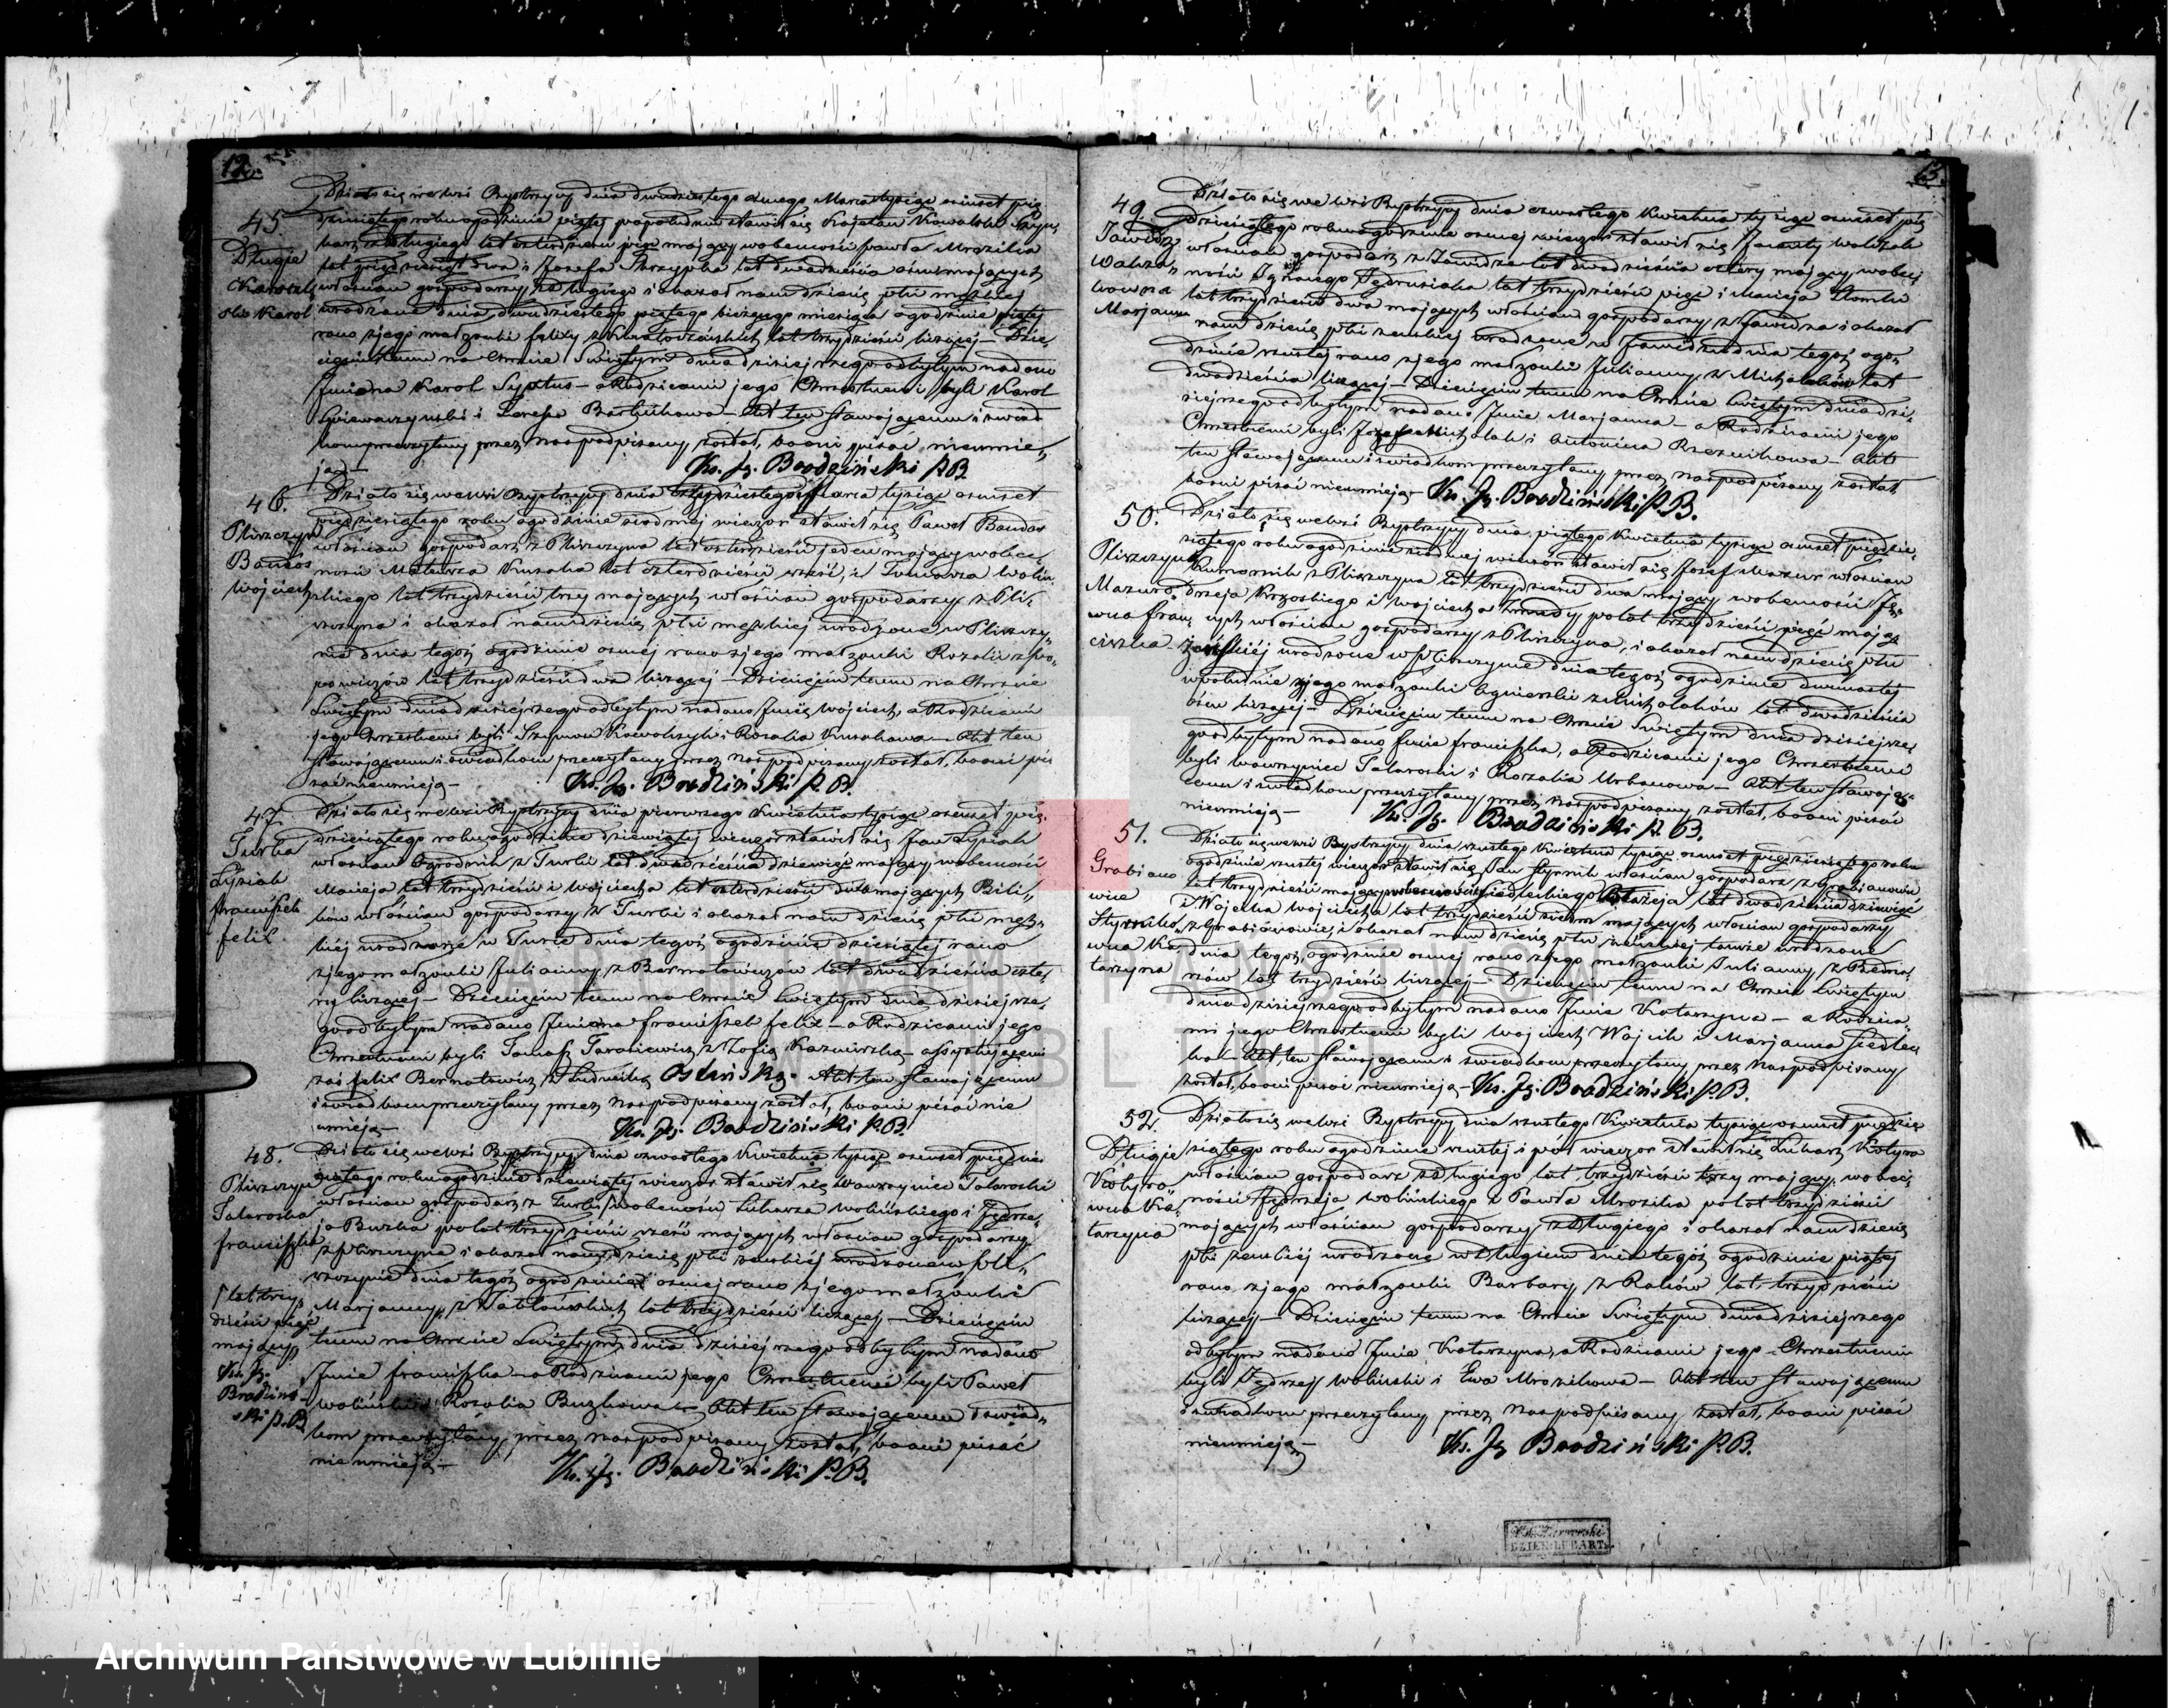 12.
45.
Długie
Kowalski Karol
Działo się we wsi Bystrzycy dnia dwudziestego ósmego Marca tysiąc ośmset pięć
dziesiątego roku o godzinie piątej po południu stawił się Kajetan Kowalski
karz z Długiego lat czterdzieści pięć mający w obecności Pawła Mrozika
lat pięćdziesiąt dwa i Józefa Skrzypka lat dwadzieścia ośm mających
włościan gospodarzy z Długiego i okazał nam dziecię płci męzkiej
urodzone dnia dwudziestego piątego bieżącego miesiąca o godzinie piątej
rano z jego małżonki lat trzydzieści liczącej – Dzie
cięciu temu na Chrzcie Świętym dnia dzisiejszego odbytym nadano
Imiona Karol Syxtus – a Rodzicami jego Chrzestnemi byli Karol
i Teressa – Akt ten stawającemu i świad
kom przeczytany przez nas podpisany został, bo oni pisać nieumie„
ją –
Ks. Jg. Brodziński P.B.
46.
Pliszczyn
Bandos
Wojciech
Działo się we wsi Bystrzycy dnia trzydziestego Marca tysiąc ośmset
pięćdziesiątego roku o godzinie siódmej wieczór stawił się Paweł Bandos
włościan gospodarz z Pliszczyna lat czterdzieści jeden mający w obec„
ności Mateusza Kusaka lat czterdzieści sześć, i Tomasza Woliń„
skiego lat trzydzieści trzy mających włościan gospodarzy z Pli„
szczyna i okazał nam dziecię płci męzkiej urodzone w Pliszczy„
nie dnia tegoż o godzinie ósmej rano z jego małżonki Rozalii z Po„
powiczów lat trzydzieści dwa liczącej – Dziecięciu temu na Chrzcie
Świętym dnia dzisiejszego odbytym nadano Imię Wojciech, a Rodzicami
jego Chrzestnemi byli Szymon Kowalczyk i Rozalia Kusakowa – Akt ten
stawającemu i świadkom przeczytany przez nas podpisany został, bo oni pi
sać nieumieją –
Ks. Jg. Brodziński P.B.
47.
Turka
Łysiak
Franciszek
Felix
Działo się we wsi Bystrzycy dnia pierwszego Kwietnia tysiąc ośmset pięć
dziesiątego roku o godzinie dziewiątej wieczór stawił się Jan Łysiak
włościan Ogrodnik z Turki lat dwadzieścia dziewięć mający w obecności
Macieja lat trzydzieści i Wojciecha lat czterdzieści dwa mających Bili„
ków włościan gospodarzy z Turki i okazał nam dziecię płci męz„
kiej urodzone w Turce dnia tegoż o godzinie dziesiątej rano
z jego małżonki Julianny z Bernatowiczów lat dwadzieścia czte„
ry liczącej – Dziecięciu temu na Chrzcie Świętym dnia dzisiejsze„
go odbytym nadano Imiona Franciszek Felix – a Rodzicami jego
Chrzestnemi byli Tomasz z Zofią – assystującemi
zaś Felix Bernatowicz z Ludwiką Osińską. Akt ten stawającemu
i świadkom przeczytany przez nas podpisany został, bo oni pisać nie
umieją –
Ks. Jg. Brodziński P.B.
48.
Pliszczyn
Talarowska
Franciszka
Działo się we wsi Bystrzycy dnia czwartego Kwietnia tysiąc ośmset pięćdzie
siątego roku o godzinie dziewiątej wieczór stawił się Wawrzyniec Talarowski
włościan gospodarz z Turki w obecności Łukasza Wolińskiego i Jędrze„
ja Buzka po lat trzydzieści sześć mających włościan gospodarzy
z Pliszczyna i okazał nam dziecię płci żeńskiej urodzone w Pli„
szczynie dnia tegoż o godzinie ósmej rano z jego małżonki
Marjanny z lat trzydzieści liczącej – Dziecięciu
temu na Chrzcie Świętym dnia dzisiejszego odbytym nadano
Imie Franciszka – a Rodzicami jego Chrzestnemi byli Paweł
Woliński i Rozalia Buzkowa – Akt ten stawającemu i świad„
kom przeczytany przez nas podpisany został, bo oni pisać
nie umieją –
lat trzy
dzieści pięć
mający
Ks. Jg.
Brodziń
ski P.B
Ks. Jg. Brodziński P.B.
63.
49.
Zawidz
Walcza„
kowna
Marjanna
Działo się we wsi Bystrzycy dnia czwartego Kwietnia tysiąc ośmset pięć
dziesiątego roku o godzinie ósmej wieczór stawił się Jacenty Walczak
włościan gospodarz z Zawidza lat dwadzieścia cztery mający w obec„
ności Jędrusiaka lat trzydzieści pięć i Macieja
lat trzydzieści dwa mających włościan gospodarzy z Zawidza i okazał
nam dziecię płci żeńskiej urodzone w Zawidzu dnia tegoż o go„
dzinie szóstej rano z jego małżonki Julianny z Michalaków lat
dwadzieścia liczącej – Dziecięciu temu na Chrzcie Świętym dnia dzi„
siejszego odbytym nadano Imie Marjanna – a Rodzicami jego
Chrzestnemi byli Józef Michalak i Antonina – Akt
ten stawającemu i świadkom przeczytany przez nas podpisany został,
bo oni pisać nieumieją – Ks. Jg. Brodziński P.B.
50.
Pliszczyn
Mazuró„
wna Fran„
ciszka
Działo się we wsi Bystrzycy dnia piątego Kwietnia tysiąc ośmset pięćdzie„
siątego roku o godzinie siódmej wieczór stawił się Józef Mazur włościan
Komornik z Pliszczyna lat trzydzieści dwa mający w obecności Ję„
drzeja i Wojciecha po lat trzydzieści pięć mają„
cych włościan gospodarzy z Pliszczyna, i okazał nam dziecię płci
żeńskiej urodzone w Pliszczynie dnia tegoż o godzinie dwunastej
w południe z jego małżonki Agnieszki z Michalaków lat dwadzieścia
ośm liczącej – Dziecięciu temu na Chrzcie Świętym dnia dzisiejsze„
go odbytym nadano Imie Franciszka, a Rodzicami jego Chrzestnemi
byli Wawrzyniec Talarowski i Rozalia Urbanowa – Akt ten stawają„
cemu i świadkom przeczytany przez nas podpisany został, bo oni pisać
nieumieją –
Ks. Jg. Brodziński P.B.
51.
Grabiano
wice
wna Ka„
tarzyna
Działo się we wsi Bystrzycy dnia szóstego Kwietnia tysiąc ośmset pięćdziesiątego roku
o godzinie szóstej wieczór stawił się Jan włościan gospodarz z Grabianowic
lat trzydzieści mający w obecności Siedleckiego Błażeja lat dwadzieścia dziewięć
i Wojcika Wojciecha lat trzydzieści siedm mających włościan gospodarzy
z Grabianowic, i okazał nam dziecię płci żeńskiej tamże urodzone
dnia tegoż o godzinie ósmej rano z jego małżonki Julianny z
lat trzydzieści liczącej – Dziecięciu temu na Chrzcie Świętym
dnia dzisiejszego odbytym nadano Imie Katarzyna – a Rodzica„
mi jego Chrzestnemi byli Wojciech Wojcik i Marjanna Siedlec
ka – Akt ten stawającemu i świadkom przeczytany przez nas podpisany
został, bo oni pisać nieumieją – Ks. Jg. Brodziński P.B.
52.
Długie
Kotyra
wna Ka„
tarzyna
Działo się we wsi Bystrzycy dnia szóstego Kwietnia tysiąc ośmset pięćdzie
siątego roku o godzinie szóstej i pół wieczór stawił się Łukasz Kotyra
włościan gospodarz z Długiego lat trzydzieści trzy mający w obec„
ności Jędrzeja Wolińskiego i Pawła Mrozika po lat trzydzieści
mających włościan gospodarzy z Długiego i okazał nam dziecię
płci żeńskiej urodzone w Długiem dnia tegoż o godzinie piątej
rano z jego małżonki Barbary z Raków lat trzydzieści
liczącej – Dziecięciu temu na Chrzcie Świętym dnia dzisiejszego
odbytym nadano Imie Katarzyna, a Rodzicami jego Chrzestnemi
byli Jędrzej Woliński i Ewa Mrozikowa – Akt ten stawającemu
i świadkom przeczytany przez nas podpisany został, bo oni pisać
nieumieją –
Ks. Jg Brodziński P.B.
ARCHIWUM PAŃSTWOWE
W LUBLINIE
Archiwum Państwowe w Lublinie